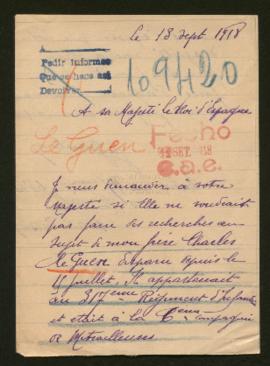 le 18 sept 1918
Pedir informes
Que se hace así
Devolver
109420
A sa Majesté le Roi d'Espagne
Le Guen
Fecho
SET. 18
C.a.e.
Je viens demander à votre
Majesté si elle ne voudrait
pas faire des recherches au
sujet de mon frère Charles
Le Guen disparu depuis le
15 juillet. Il appartenait
au 317ème Régiment d'Infanterie
et était à la 6ème compagnie
de Mitrailleuses